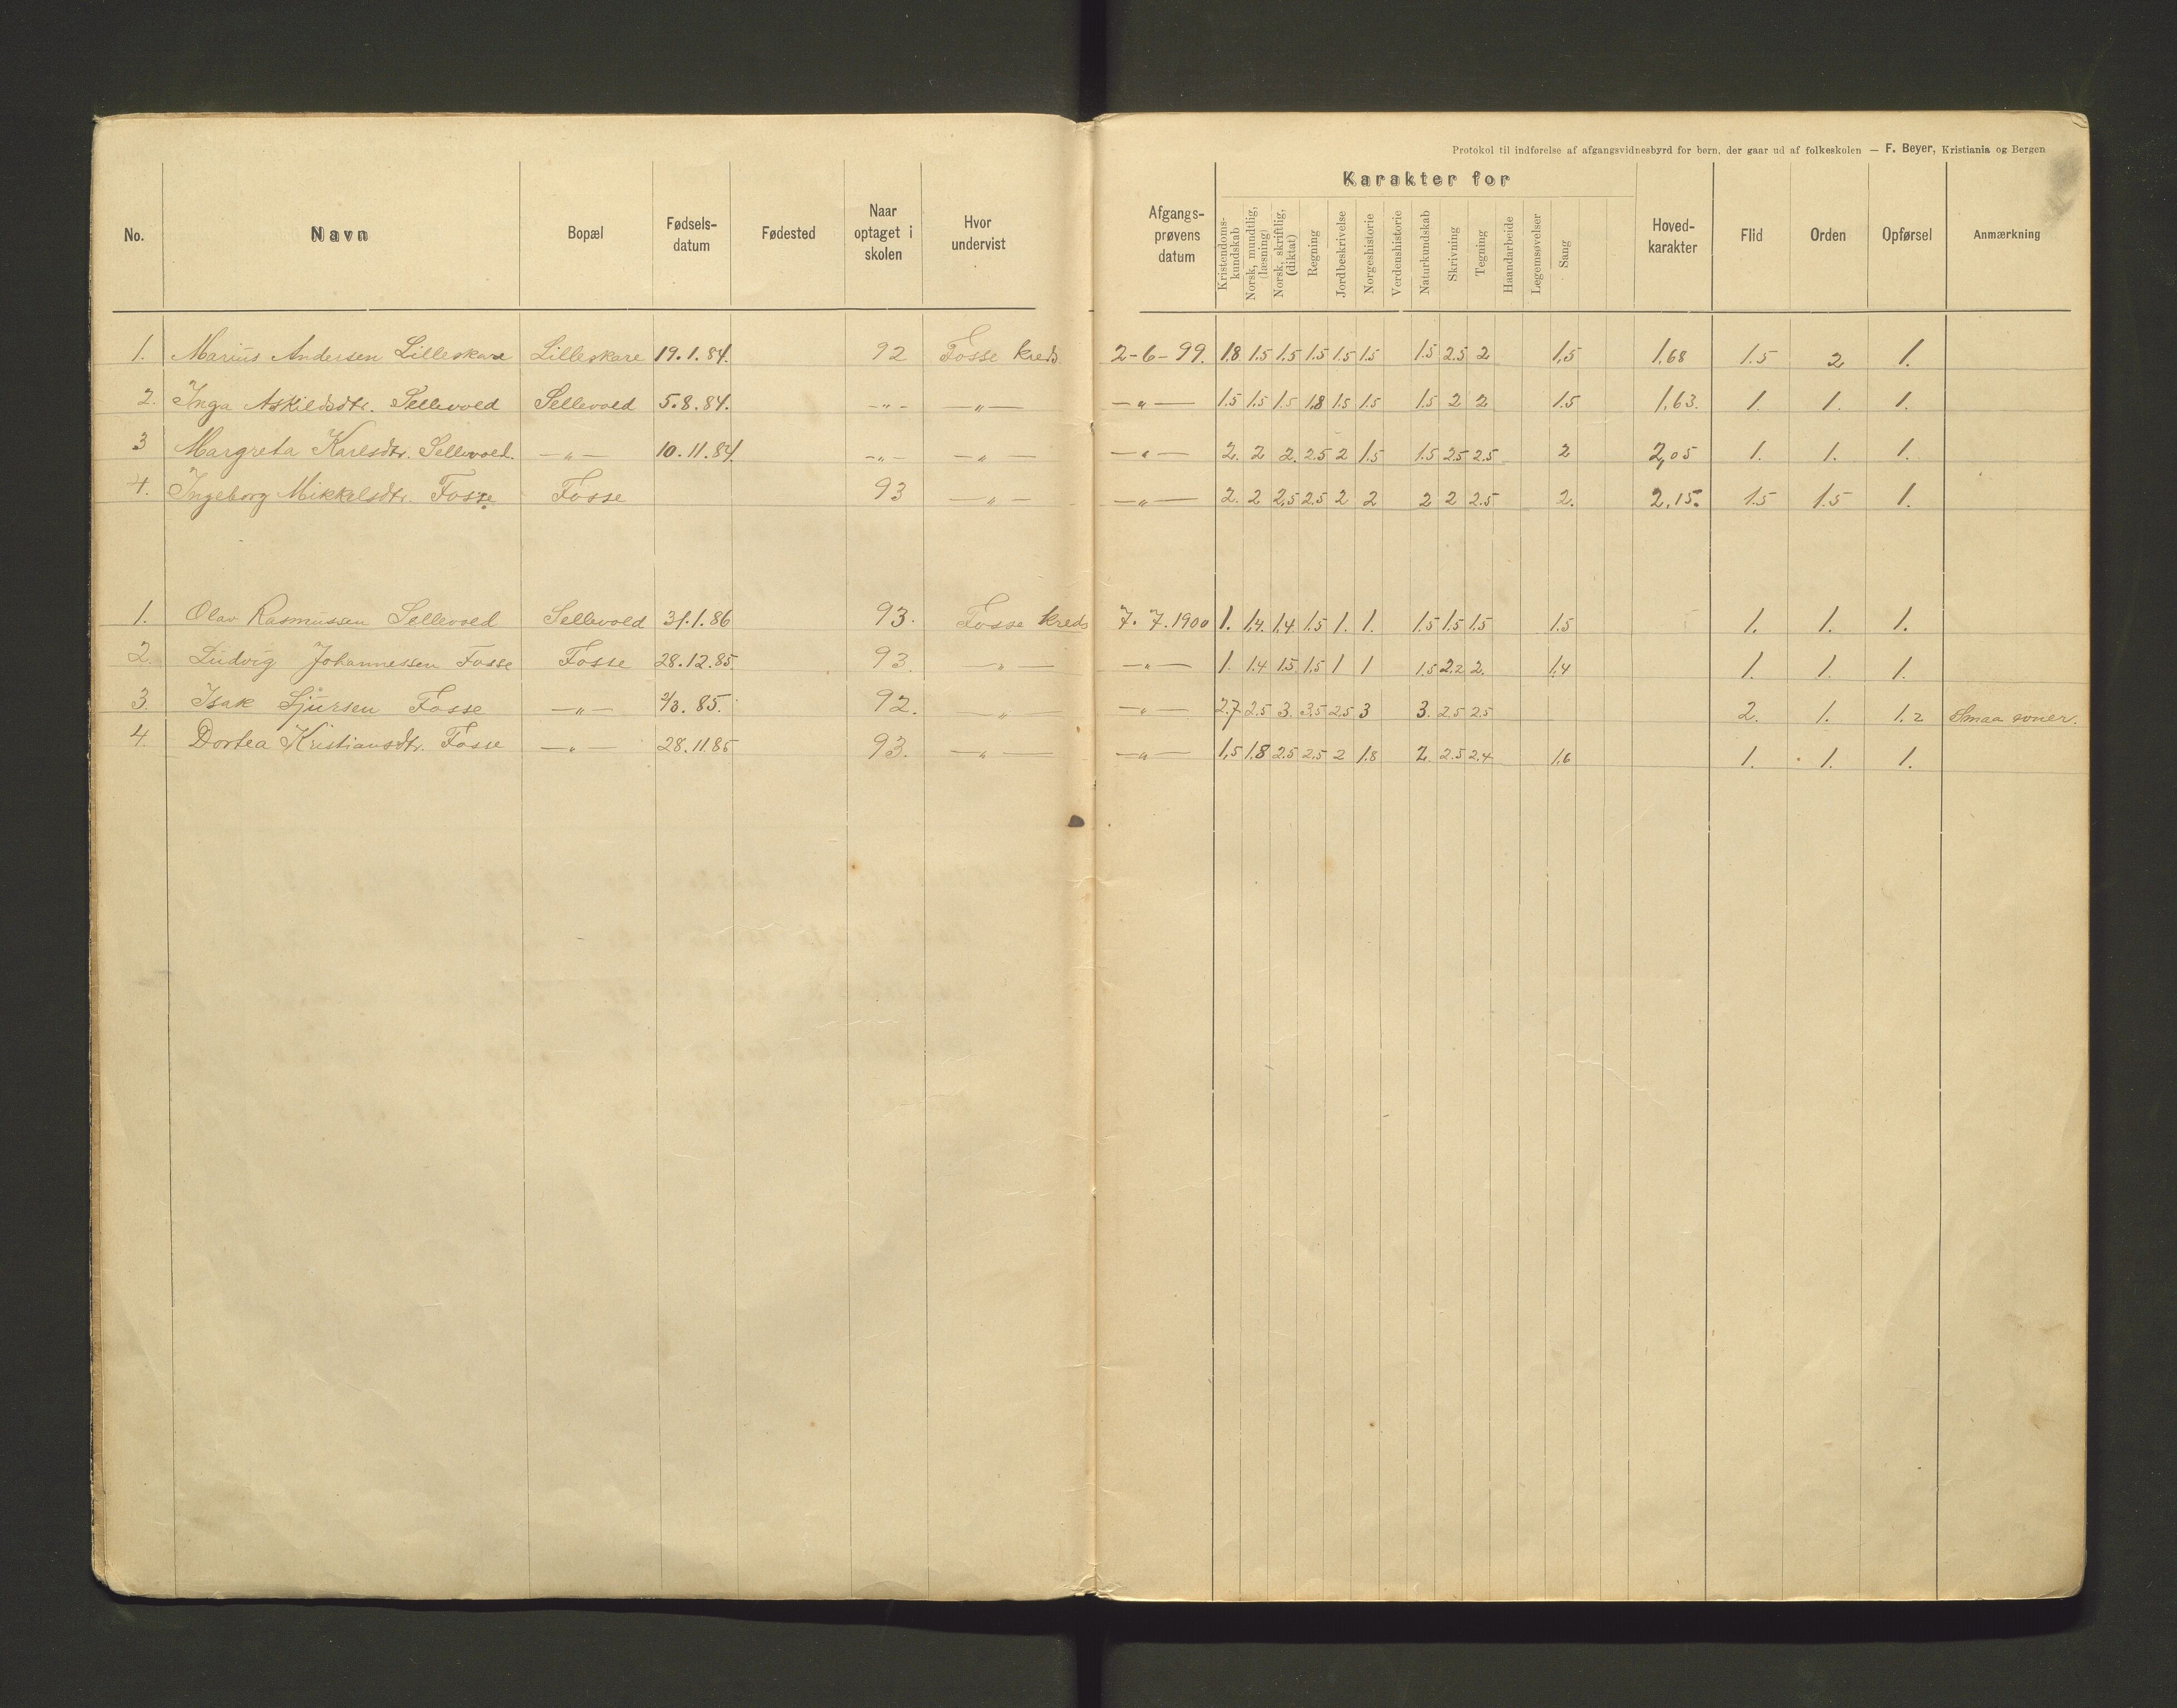 Protokol til indførelse af afgangsvidnesbyrd for børn, der gaar ud af folkeskolen — F. Beyer, Kristiania og Bergen
No. Navn Bopæl Fødsels-datum Fødested Naar optaget i skolen Hvor undervist Afgangs-prøvens datum Karakter for Hoved-karakter Flid Orden Opførsel Anmærkning
Kristendoms-kundskab Norsk, mundtlig, (læsning) Norsk, skriftlig, (diktat) Regning Jordbeskrivelse Norgeshistorie Verdenshistorie Naturkundskab Skrivning Tegning Haandarbeide Legemsøvelser Sang
1. Marius Andersen Lilleskare Lilleskare 19.1.84. 92 Fosse kreds 2-6-99. 1.8 1.5 1.5 1.5 1.5 1.5 1.5 2.5 2 1,5 1,68 1.5 2 1.
2. Inga Askildsdtr. Sellevold Sellevold 5.8.84. -„- -„- -„- 1.5 1.5 1.5 1.8 1.5 1.5 1.5 2 2 1.5 1,63. 1. 1. 1.
3 Margreta Karlsdtr. Sellevold. -„- 10.11.84. -„- -„- -„- 2. 2 2. 2.5 2 1.5 1.5 2.5 2.5 2 2,05 1. 1. 1.
4. Ingeborg Mikkelsdtr. Fosse Fosse 93 -„- -„- 2. 2 2,5 2.5 2 2 2 2 2.5 2. 2,15. 1.5 1.5 1.
1. Olav Rasmussen Sellevold Sellevold 31.1.86 93. Fosse kreds 7. 7. 1900 1. 1,4. 1.4 1.5 1. 1. 1.5 1.5 1.5 1.5 1. 1. 1.
2. Ludvig Johannessen Fosse Fosse 28.12.85. 93. -„- -„- 1. 1.4 1.5. 1.5 1 1 1.5 2.2 2. 1,4 1. 1. 1.
3. Isak Sjursen Fosse -„- 2/3. 85. 92. -„- -„- 2.7 2.5 3. 3,5 2.5 3 3. 2.5 2.5 2. 1. 1.2 Smaa evner.
4. Dortea Kristiansdtr. Fosse -„- 28.11.85 93. -„- -„- 1,5 1.8 2.5 2,5 2 1.8 2. 2.5 2.4 1,6 1. 1. 1.